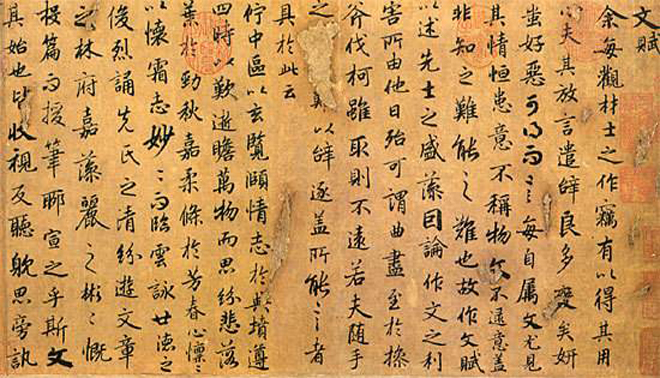 文賦
余每觀材士之作竊有以得其用
心夫其放言遣辭良多變矣妍
蚩好惡可得而言每自屬文尤見
其情恒患意不稱物文不逮意蓋
非知之難能之難也故作文賦
以述先士之盛藻因論作文之利
害所由他日殆可謂曲盡至於操
斧伐柯雖取則不遠若夫隨手
之難以辭逐蓋所能言者
具於此云
佇中區以玄覽頤情志於典墳遵
四時以歎逝瞻萬物而思紛悲落
葉於勁秋嘉柔條於芳春心懍〻
以懷霜志妙〻而臨雲詠世德之
俊烈誦先民之清紛遊文章
之林府嘉藻麗之彬〻慨
投篇而援筆聊宣之乎斯文
其始也皆收視反聽耽思旁訊